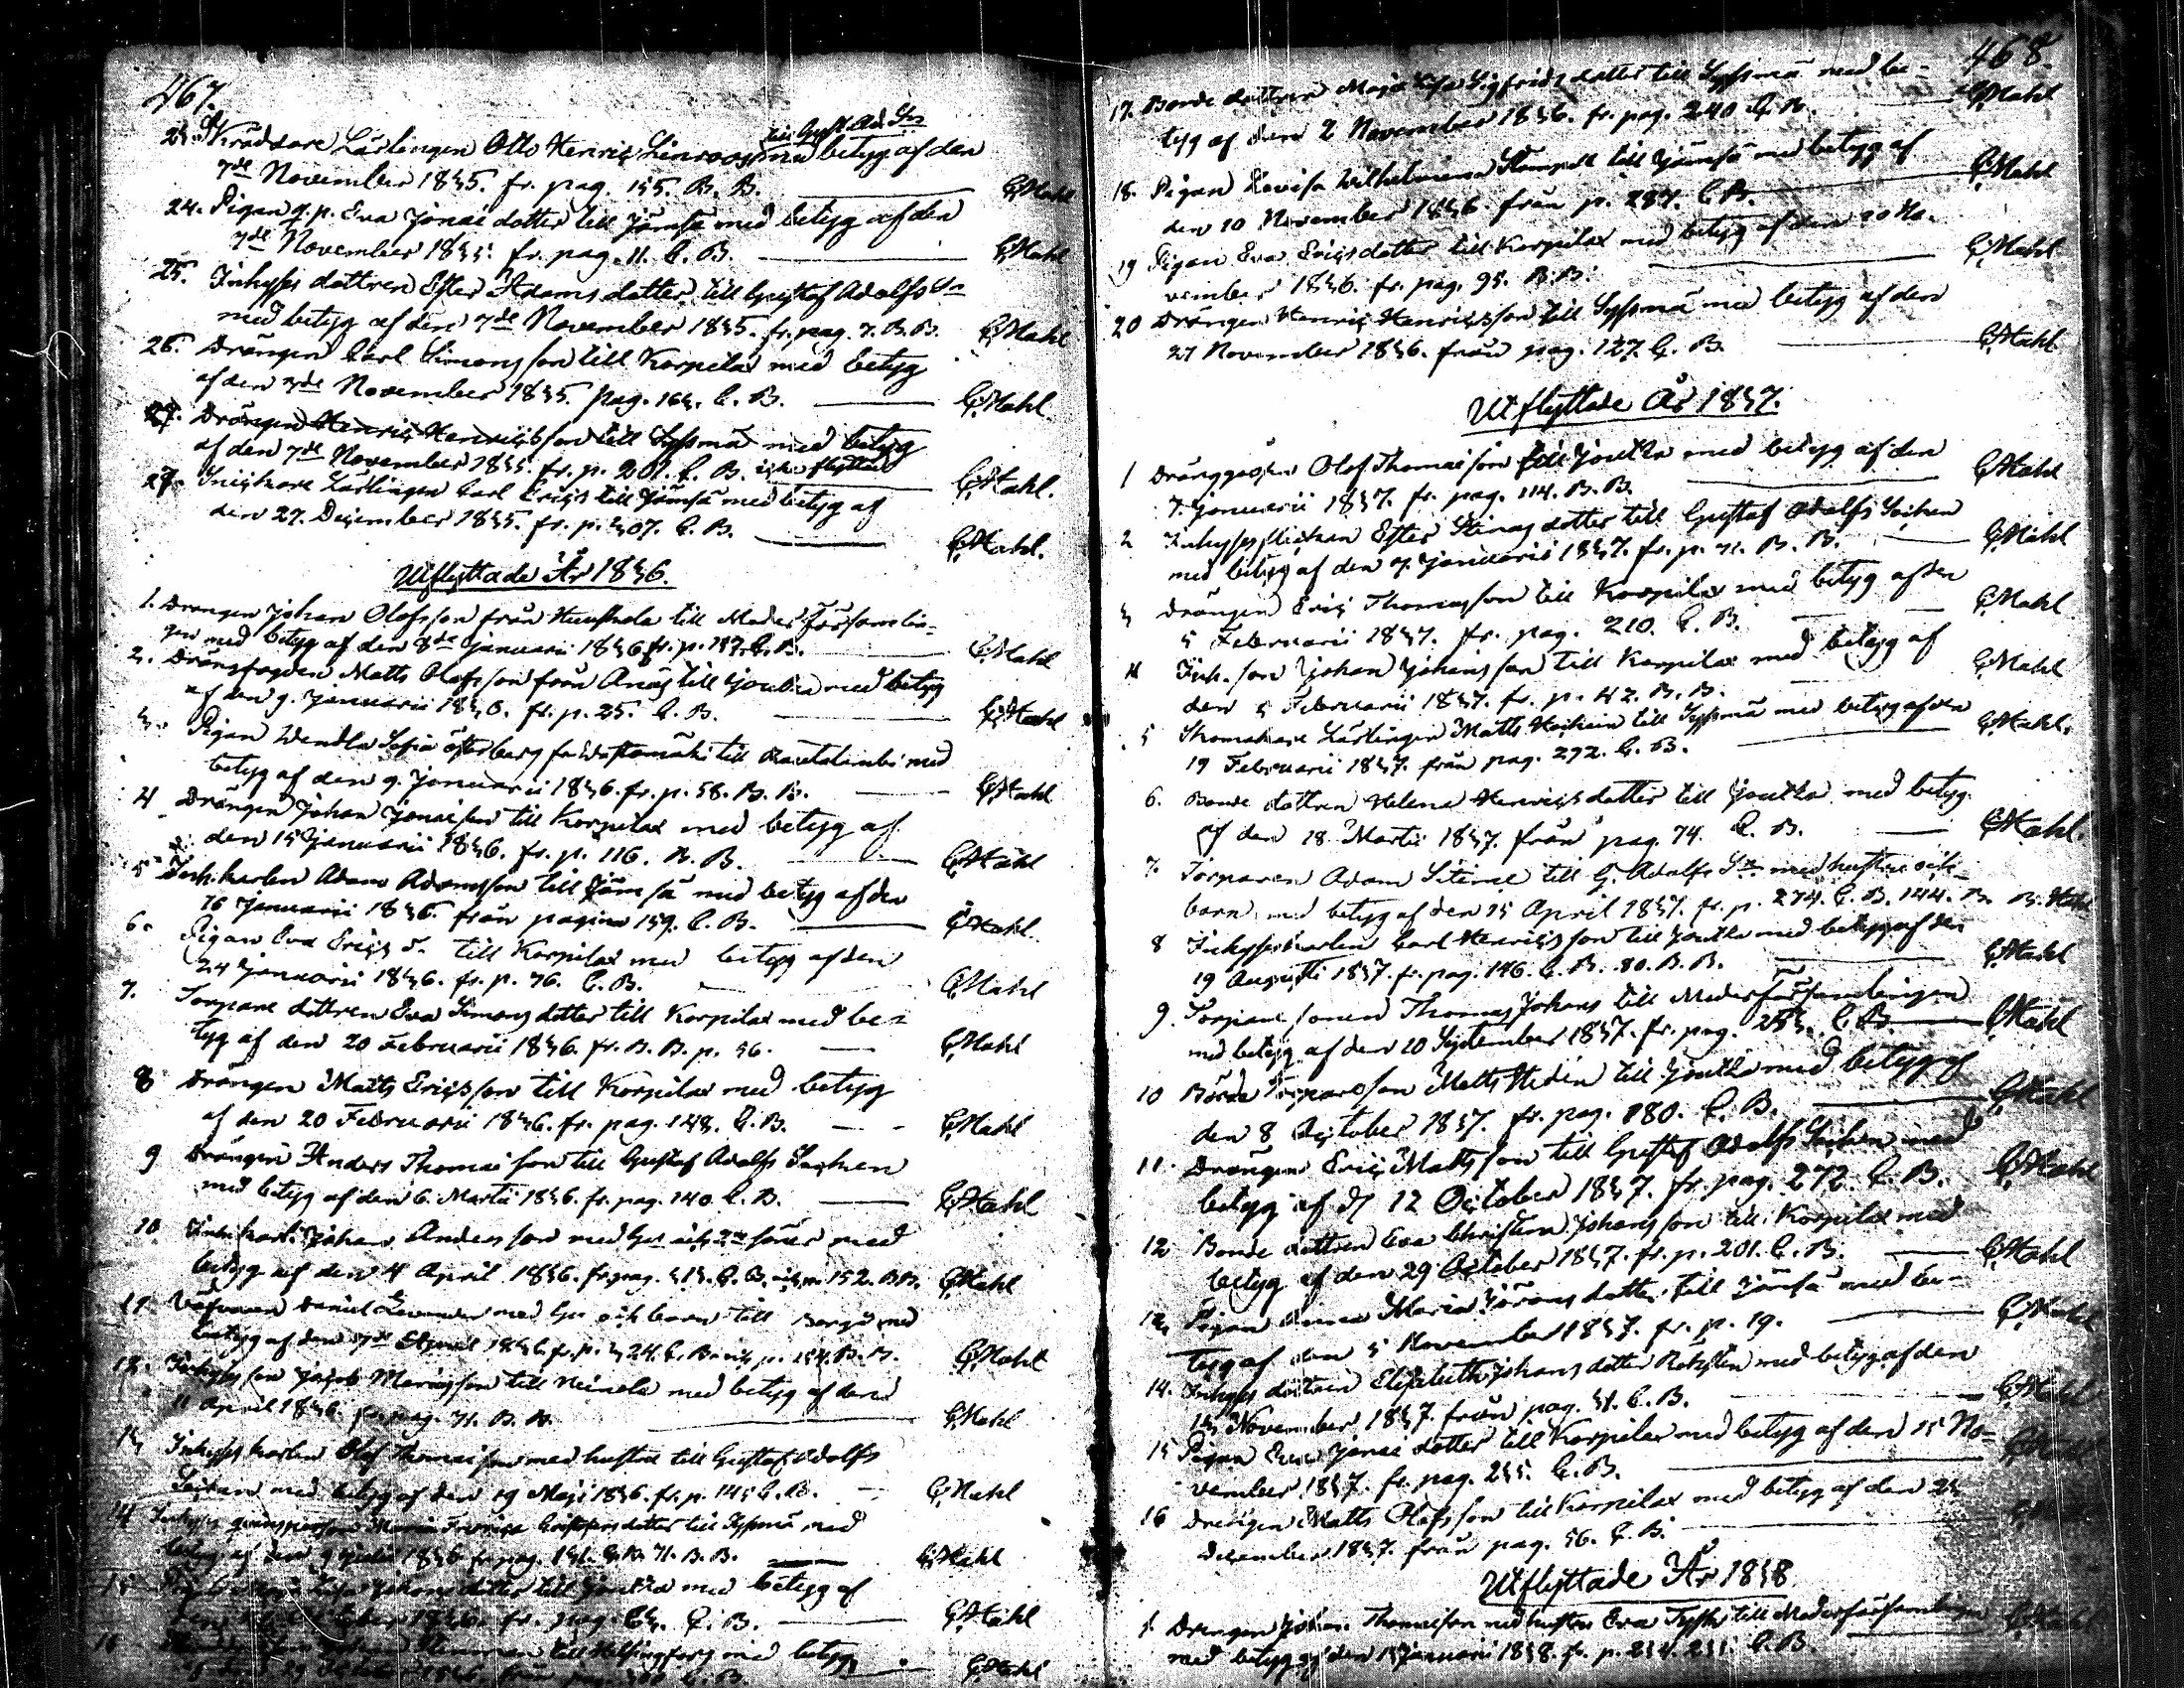 467.
till Gust. Ad. Sn
23. Skräddare Lärlingen Otto Henric Linroos med betyg af den
7de November 1835. fr. pag. 155. B. B. CStahl
24. Pigan g. p. Eva Jonae dotter till Jämsä med betyg af den
7de November 1835. fr. pag. 11. C. B. CStahl
25. Inhyses dottren Ester Adams dotter till Gustaf Adolfs Sn
med betyg af den 7de November 1835. fr. pag. 7. B. B. CStahl
26. Drängen Carl Simonsson till Korpilax med betyg
af den 7de November 1835. pag. 163. C. B. CStahl.
27. Drängen Henric Henricsson till Syssmä med betyg
af den 7de November 1835. fr. p. 201. C. B. icke flyttat CStahl.
27. Snickare Lärlingen Carl Erics till Jämsä med betyg af
den 27. December 1835. fr. p. 307. C. B. CStahl.
Utflyttade År 1836.
1. Drängen Johan Olofsson från till Moderförsamlin-
gen med betyg af den 8de Januarii 1836 fr. p. 197. C. B. CStahl
2. Drängfogden Matts Olofsson från till Joutsa med betyg
af den 9. Januarii 1836. fr. p. 25. C. B. CStahl
3. Pigan Wendla Sofia Österberg fr. till Rautalambi med
betyg af den 9. Januarii 1836. fr. p. 58. B. B. CStahl
4 Drängen Johan Jonaeson till Korpilax med betyg af
den 15 Januarii 1836. fr. p. 116. B. B. CStahl
5 Inh. karlen Adam Adamsson till Jämsä med betyg af den
16 Januarii 1836. från pagina 159. C. B. CStahl.
6. Pigan Eva Erics d. till Korpilax med betyg af den
24 Januarii 1836. fr. p. 76. C. B. CStahl
7. Torpare dottren Eva Simons dotter till Korpilax med be-
tyg af den 20 Februarii 1836. fr. B. B. p. 56. CStahl
8 Drängen Matts Ericsson till Korpilax med betyg
af den 20 Februarii 1836. fr. pag. 148. C. B. CStahl
9 Drängen Anders Thomaeson till Gustaf Adolfs Sochen
med betyg af den 6. Martii 1836. fr. pag. 140. C. B. CStahl
10. Inh. karl. Johan Andersson med Hu och 2 söner med
betyg af den 4 April 1836. fr. pag. 313. C. B. och p. 152. BB. CStahl
11 Daniel med Hu och barn till Borgå med
betyg af den 7de April 1836 fr. p. 324. C. B. och p. 154. B. B. CStahl
12. Inhyses son Jacob Mariasson till Heinola med betyg af den
11 April 1836. fr. pag. 71. B. B. CStahl
13 Inhyses karlen Olof Thomaeson med hustru till Gustaf Adolfs
Sochen med betyg af den 19 Maji 1836. fr. p. 145 C. B. CStahl
14 Inhyses Maria dotter till Syssmä med
betyg af den 9 1836 fr. pag. 131. C. B. 71. B. B. CStahl
15 Lisa Johans dotter till Joutsa med betyg af
October 1836. fr. pag. C. B. CStahl
16 till Helsingfors med betyg
af den 29 October 1836. från pag. C. B. CStahl
468.
17. Bonde dottren Maja Lisa Sigfrids dotter till Syssmä med be-
tyg af den 2 November 1836. fr. pag. 240 C. B. CStahl
18. Pigan Lovisa Wilhelmina till Jämsä med betyg af
den 10 November 1836. från p. 287. C. B. CStahl
19 Pigan Eva Erics dotter till Korpilax med betyg af den 20 No-
vember 1836. fr. pag. 95. B. B. CStahl
20 Drängen Henric Henricsson till Syssmä med betyg af den
27 November 1836. från pag. 127. C. B. CStahl
Utflyttade År 1837.
1 Olof Thomaeson till Joutsa med betyg af den
7. Januarii 1837. fr. pag. 114. B. B. CStahl
2 Inhyses flickan Ester Stinas dotter till Gustaf Adolfs Sochen
med betyg af den 7. Januarii 1837. fr. p. 71. B. B. CStahl
3 Drängen Eric Thomasson till Korpilax med betyg af den
5 Februarii 1837. fr. pag. 210. C. B. CStahl
4 Inh. son Johan Johansson till Korpilax med betyg af
den 5 Februarii 1837. fr. p. 42. B. B. CStahl
5 Skomakare Lärlingen Matts till Syssmä med betyg af den
19 Februarii 1837. från pag. 272. C. B. CStahl.
6. Bonde dottren Helena Henrics dotter till Joutsa med betyg
af den 18. Martii 1837. från pag. 74. C. B. CStahl.
7. Torparen Adam till G. Adolfs Sn med hustru och
barn med betyg af den 15 April 1837. fr. p. 274. C. B. 144. B. B. CStahl
8 Inhyses karlen Carl Henricsson till Joutsa med betyg af den
19 Augusti 1837. fr. pag. 146. C. B. 80. B. B. CStahl
9. Torpare sonen Thomas Johans till Moderförsamlingen
med betyg af den 20 September 1837. fr. pag. 253. C. B. CStahl
10 Torpareson Matts Hedin till Joutsa med betyg af
den 8 October 1837. fr. pag. 180. C. B. CStahl
11. Drängen Eric Mattsson till Gustaf Adolfs Sochen med
betyg af d 12 October 1837. fr. pag. 272. C. B. CStahl
12 Bonde dottren Eva Christina Johansson till Korpilax med
betyg af den 29 October 1837. fr. p. 201. C. B. CStahl
13 Pigan Anna Maria Görans dotter till Jämsä med be-
tyg af den 5 November 1837. fr. p. 19. CStahl
14. Inhyses dottren Elisabeth Johans dotter med betyg af den
13 November 1837. från pag. 31. C. B. CStahl
15 Pigan Eva Jonae dotter till Korpilax med betyg af den 15 No-
vember 1837. fr. pag. 235. C. B. CStahl
16 Drängen Matts Olofsson till Korpilax med betyg af den 23
December 1837. från pag. 56. C. B.
Utflyttade År 1838
1 Drängen Johan Thomaeson med hustru Eva till Moderförsamlingen
med betyg af den 15 Januarii 1838. fr. p. 234. 231. C. B. CStahl